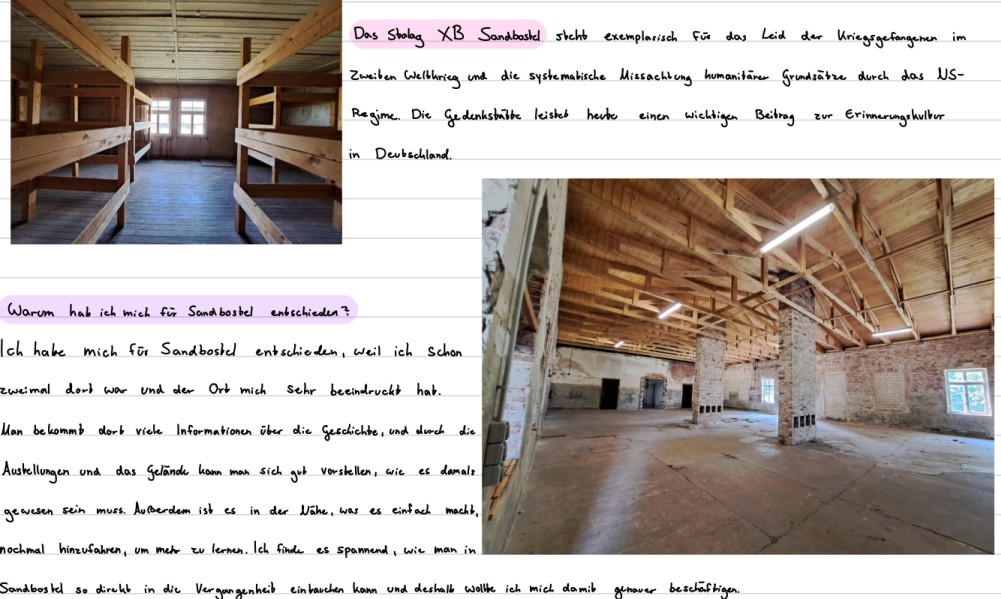 Das Stalag XB Sandbostel steht exemplarisch für das Leid der Kriegsgefangenen im
zweiten Weltkrieg und die systematische Missachtung humanitärer Grundsätze durch das NS-
Regime. Die Gedenkstätte leistet heute einen wichtigen Beitrag zur Erinnerungskultur
in Deutschland.
Warum hab ich mich für Sandbostel entschieden?
Ich habe mich für Sandbostel entschieden, weil ich schon
zweimal dort war und der Ort mich sehr beeindruckt hat.
Man bekommt dort viele Informationen über die Geschichte, und durch die
Austellungen und das Gelände kann man sich gut vorstellen, wie es damals
gewesen sein muss. Außerdem ist es in der Nähe, was es einfach macht,
nochmal hinzufahren, um mehr zu lernen. Ich finde es spannend, wie man in
Sandbostel so direkt in die Vergangenheit eintauchen kann und deshalb wollte ich mich damit genauer beschäftigen.